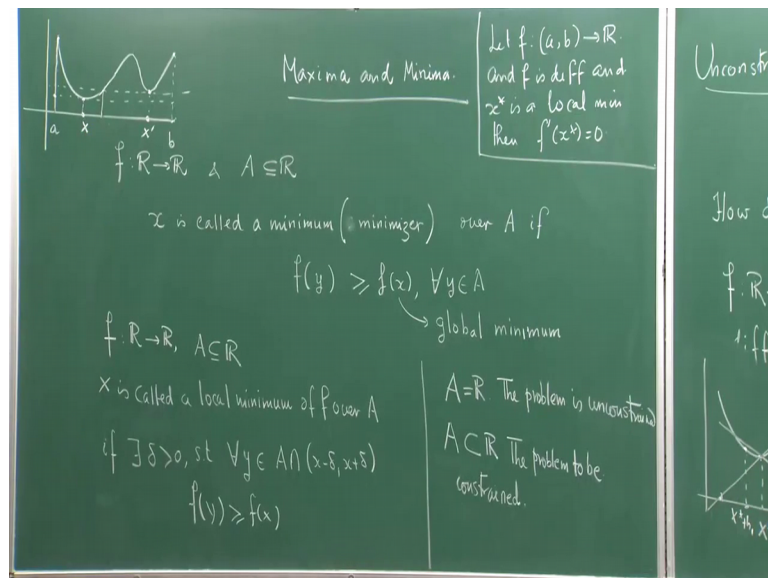 Maxima and Minima.
Let f: (a,b) → ℝ
and f is diff and
x* is a local min
then f'(x*)=0
a x x' b
f: ℝ→ℝ & A ⊆ ℝ
x is called a minimum (minimizer) over A if
f(y) ≥ f(x), ∀y∈A
global minimum
f: ℝ→ℝ, A⊆ℝ
x is called a local minimum of f over A
if ∃ δ>0, st ∀y ∈ A∩(x-δ, x+δ)
f(y) ≥ f(x)
A=ℝ The problem is unconstrained
A⊂ℝ The problem to be
constrained.
Unconstr
How
f: ℝ
diff
x*+h, x